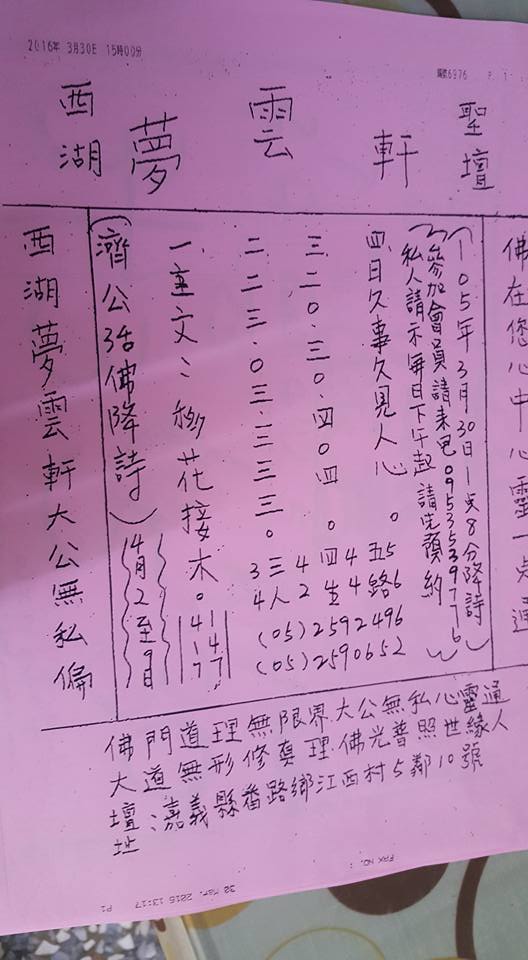 2016年 3月30日 15時00分
編號6976 P. 1
聖壇 軒 雲 夢 西湖
佛在您心中心靈一点通
(105年3月30日1点8分降詩)
(參加會員請來电0953539776)
私人請示每日下午起請先預約
四.日久事久見人心。五路 56
三.二0.三0.四0四。四生 442
二.二三.0三.三三三。三人 34
(05)2592496
(05)2590652
一.主文:移花接木。
14 47 17
(濟公活佛降詩)
4月2至9日
西湖夢雲軒大公無私偏
佛門道理無限界.大公無私心靈通
大道無形修真理.佛光普照世緣人
壇址:嘉義縣番路鄉江西村5鄰10號
FAX NO. :
30 Mar. 2015 13:17 P1